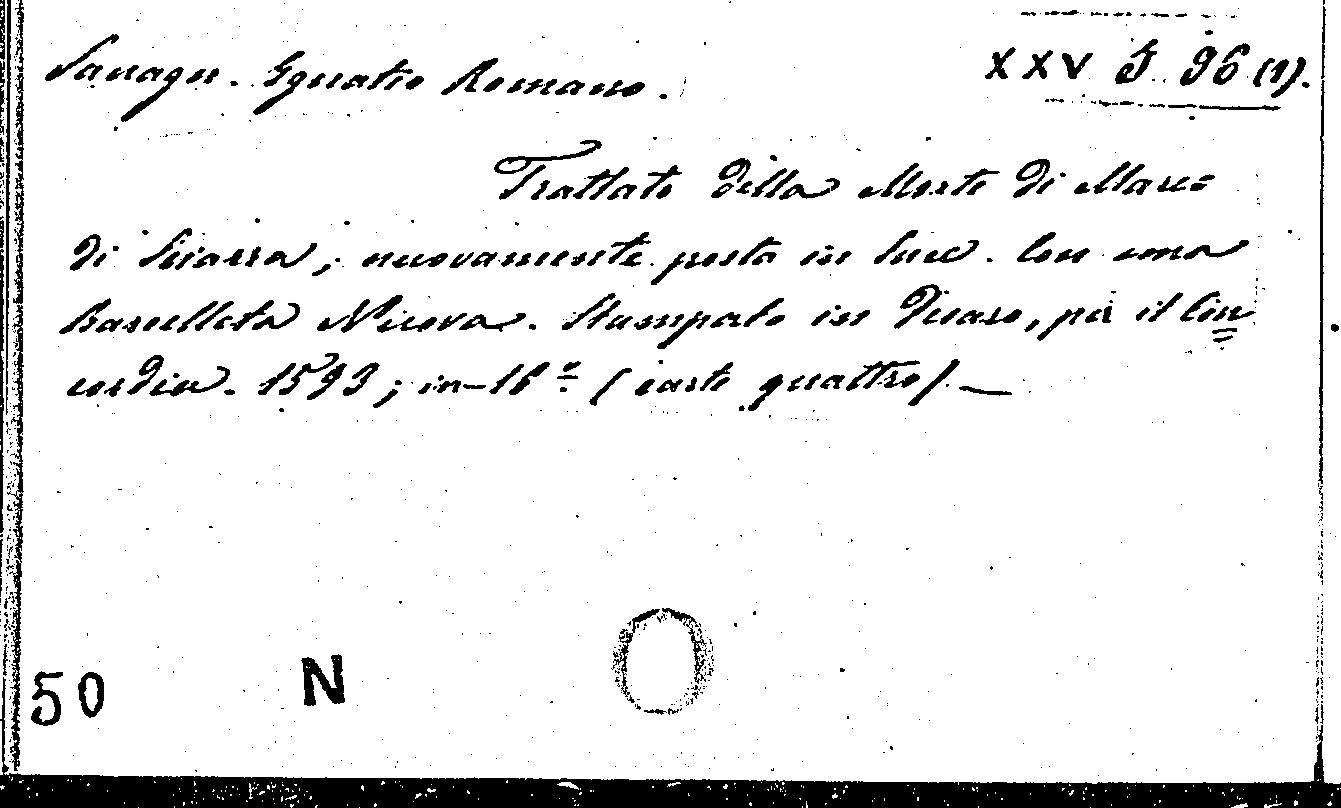 XXV G 96 (1).
Egnatio Romano.
Trattato della Morte di Marco
di Sciarra; nuovamente posto in luce. Con una
Barzelleta Nuova. Stampato in, per il Con=
cordia. 1593; in-16º (carte quattro).—
50 N